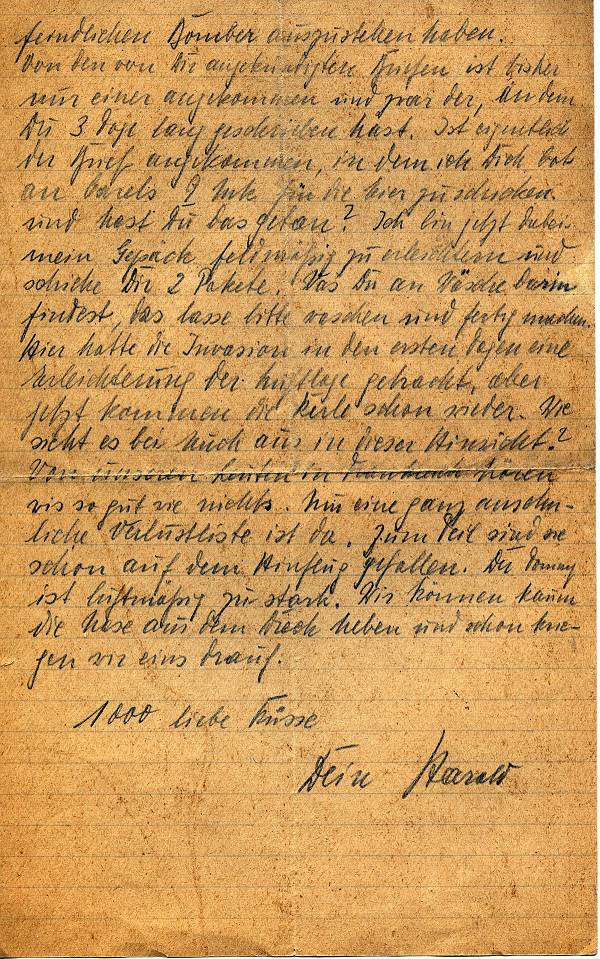 feindlichen Bomber auszustehen haben.
Von den von Dir angekündigten Briefen ist bisher
nur einer angekommen und zwar der, an dem
Du 3 Tage lang geschrieben hast. Ist eigentlich
der Brief angekommen, in dem ich Dich bat
an 2 für die hier zu schicken
und hast Du das getan? Ich bin jetzt dabei
mein Gepäck feldmäßig zu erleichtern und
schicke Dir 2 Pakete. Was Du an Wäsche darin
findest, das lasse bitte waschen und fertig machen.
Hier hatte die Invasion in den ersten Tagen eine
Erleichterung der Luftlage gebracht, aber
jetzt kommen die Kerle schon wieder. Wie
sieht es bei Euch aus in dieser Hinsicht?
Von unseren Leuten in Frankreich hören
wir so gut wie nichts. Nur eine ganz ansehn-
liche Verlustliste ist da. Zum Teil sind sie
schon auf dem Hinflug gefallen. Der Tommy
ist luftmäßig zu stark. Wir können kaum
die Nase aus dem Dreck heben und schon krie-
gen wir eins drauf.
1000 liebe Küsse
Dein Harald